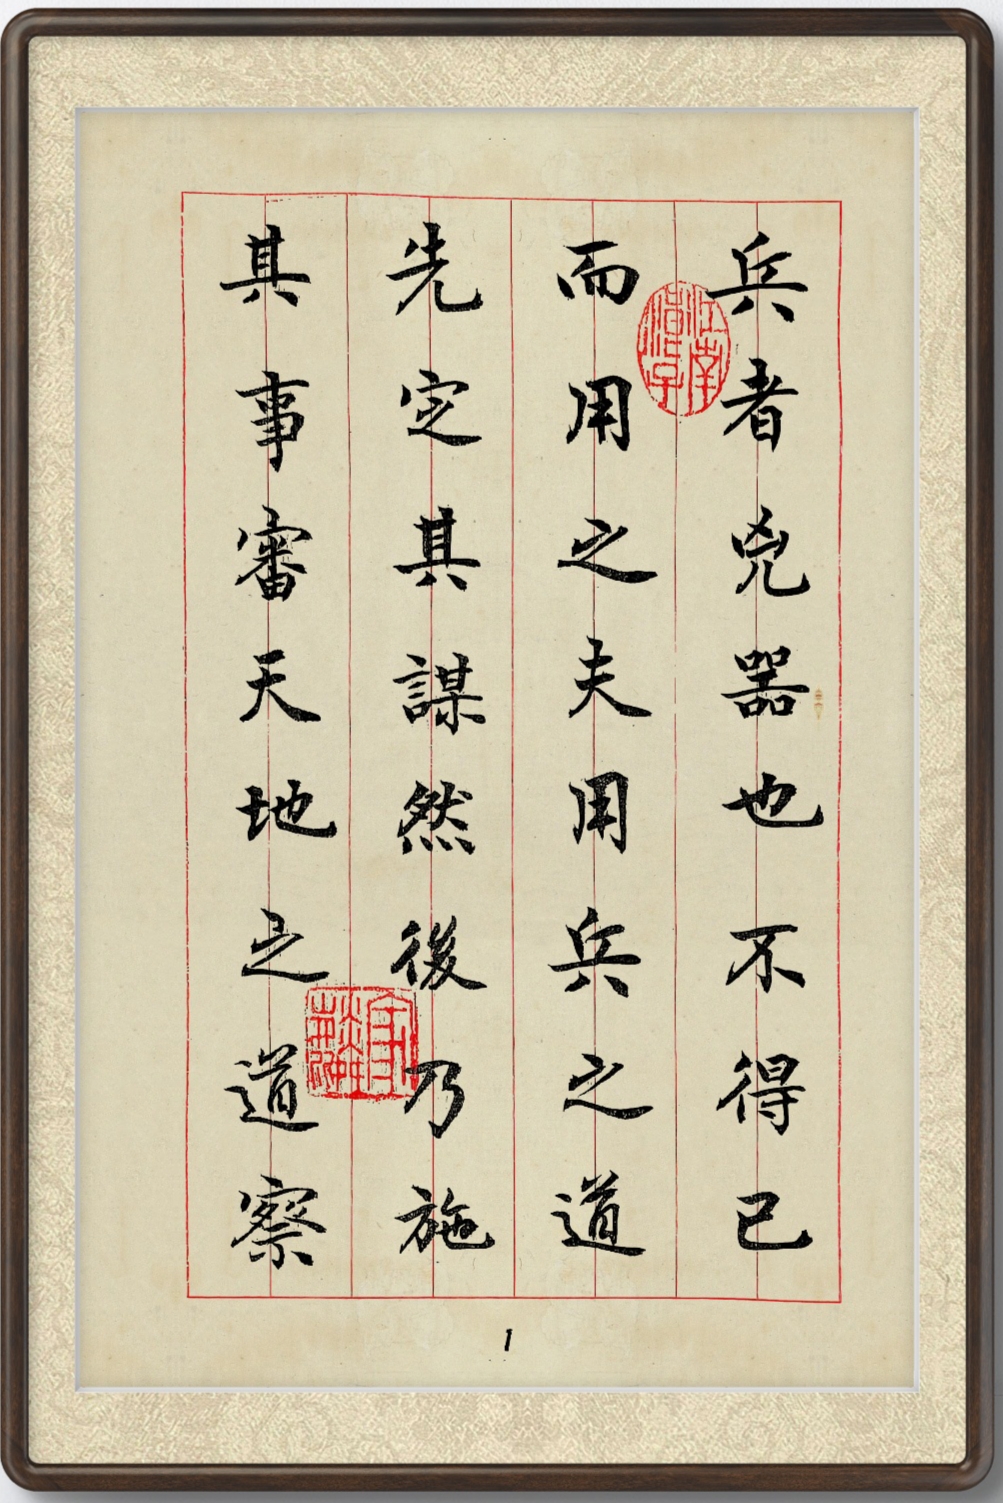 兵者兇器也不得已
而用之夫用兵之道
先定其謀然後乃施
其事審天地之道察
1